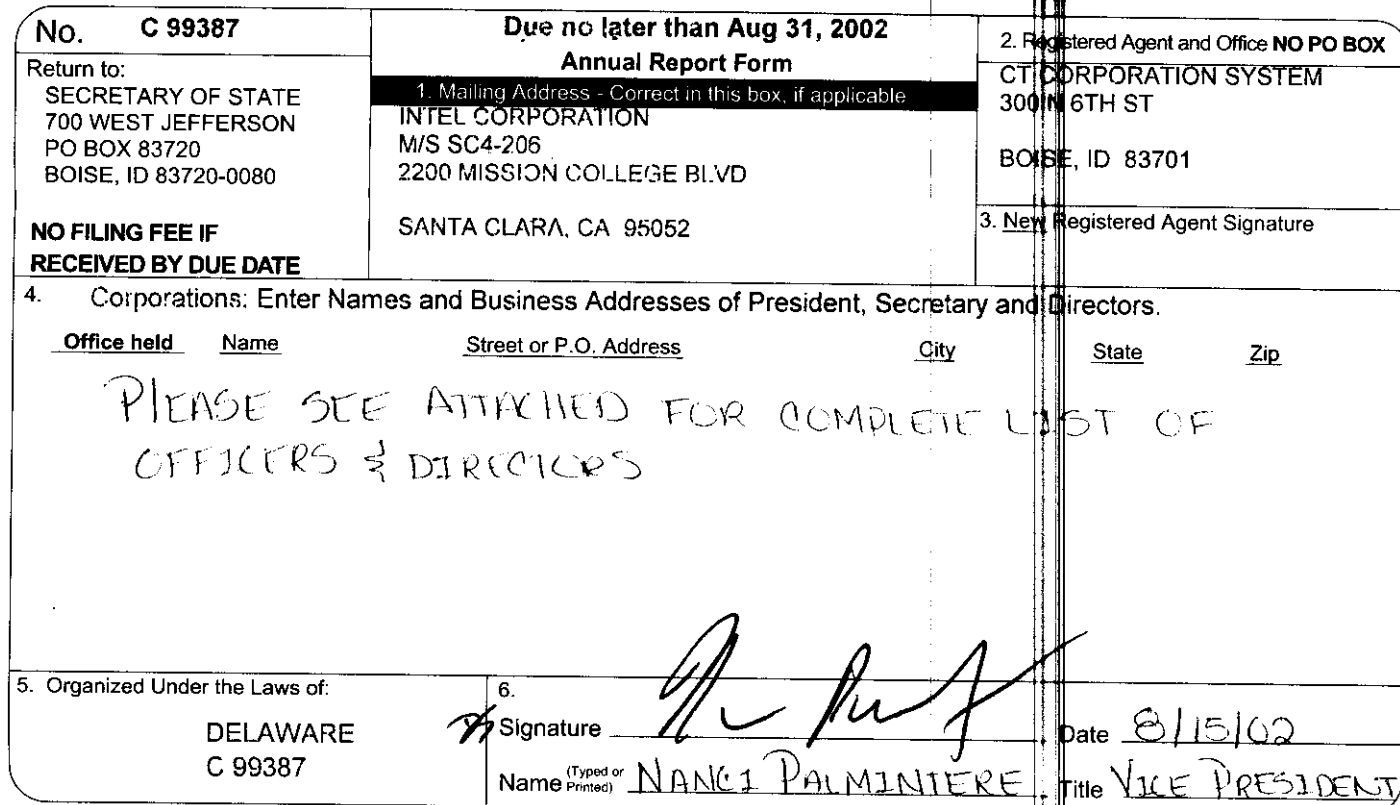 No. C 99387
Return to:
SECRETARY OF STATE
700 WEST JEFFERSON
PO BOX 83720
BOISE, ID 83720-0080
NO FILING FEE IF
RECEIVED BY DUE DATE
Due no later than Aug 31, 2002
Annual Report Form
1. Mailing Address - Correct in this box, if applicable
INTEL CORPORATION
M/S SC4-206
2200 MISSION COLLEGE BLVD
SANTA CLARA, CA 95052
2. Registered Agent and Office NO PO BOX
CT CORPORATION SYSTEM
300 N 6TH ST
BOISE, ID 83701
3. New Registered Agent Signature
4. Corporations: Enter Names and Business Addresses of President, Secretary and Directors.
Office held Name Street or P.O. Address City State Zip
PLEASE SEE ATTACHED FOR COMPLETE LIST OF
OFFICERS & DIRECTORS
5. Organized Under the Laws of:
DELAWARE
C 99387
6.
Signature Date 8/15/02
Name (Typed or Printed) NANCI PALMINTERE Title VICE PRESIDENT,